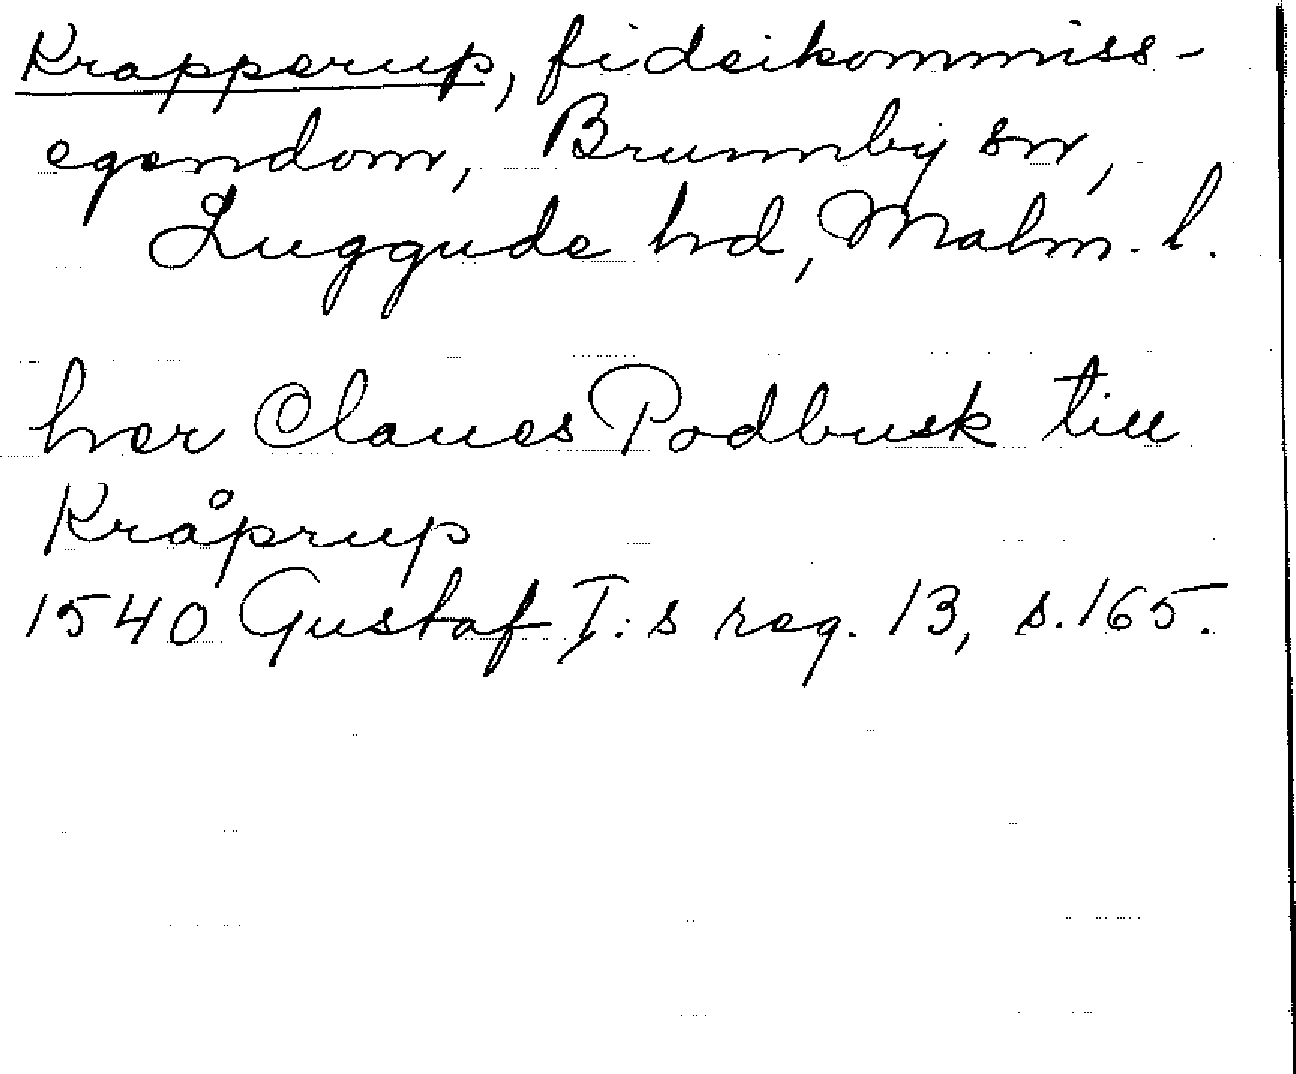 Krapperup, fideikommiss-
egendom, Brunnby sn,
Luggude hd, Malm. l.
her Claues Podbusk till
Kråprup
1540 Gustaf I:s reg. 13, s. 165.